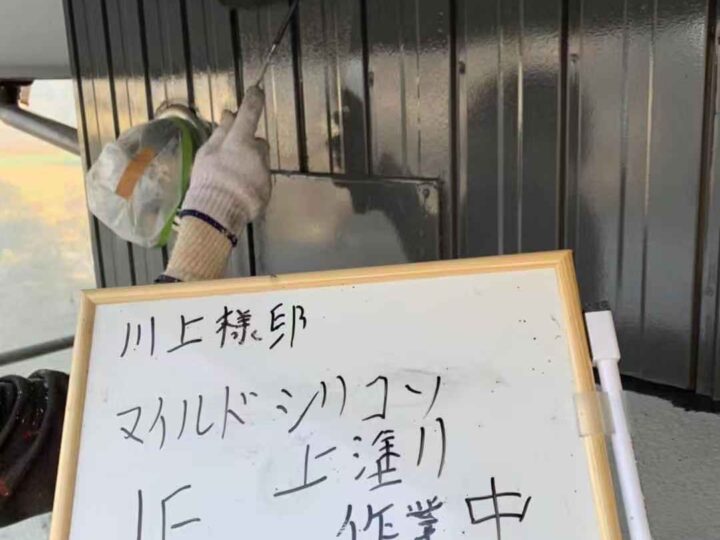 川上様邸
マイルドシリコン
上塗り
1F 作業中